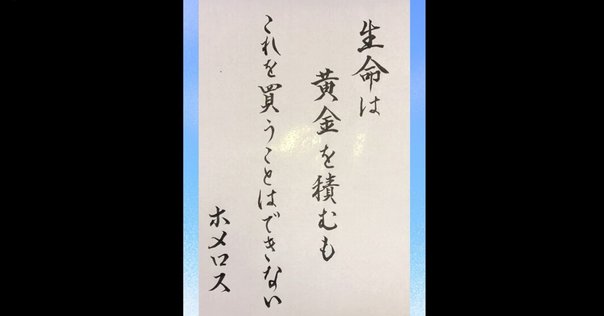 生命は
黄金を積むも
これを買うことはできない
ホメロス